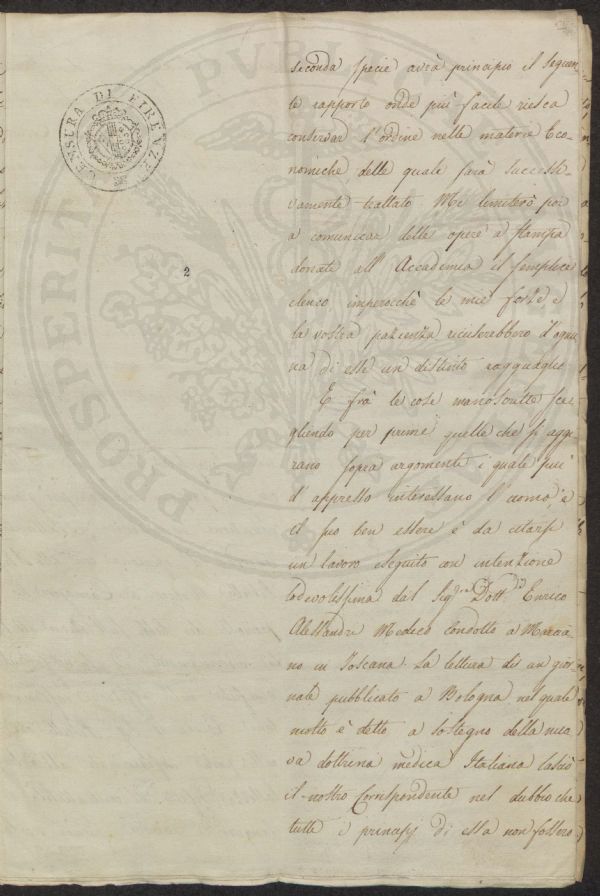 CENSURA DI FIRENZE
2
PROSPERITÀ PUBLICA
seconda specie avrà principio il seguen
te rapporto onde più facile riesca
conservar l'ordine nelle materie Eco-
nomiche delle quali sarà successi-
vamente trattato. Mi limiterò poi
a comunicar delle opere a stampa
donate all'Accademia il semplice
elenco imperocchè le mie forze e
la vostra pazienza ricuserebbero d'ognu
na di esse un distinto ragguaglio
E frà le cose manoscritte sce
gliendo per prime quelle che si aggi
rano sopra argomenti i quali più
d'appresso interessano l'uomo, e
il suo ben essere è da citarsi
un lavoro eseguito con intenzione
lodevolissima dal Sigre Dott Enrico
Alessandri Medico condotto a Marcia
no in Toscana La lettura di un gior
nale pubblicato a Bologna nel quale
molto è detto a sostegno della nuo
va dottrina medica Italiana lasciò
il nostro Corrispondente nel dubbio che
tutti i principj di essa non fossero